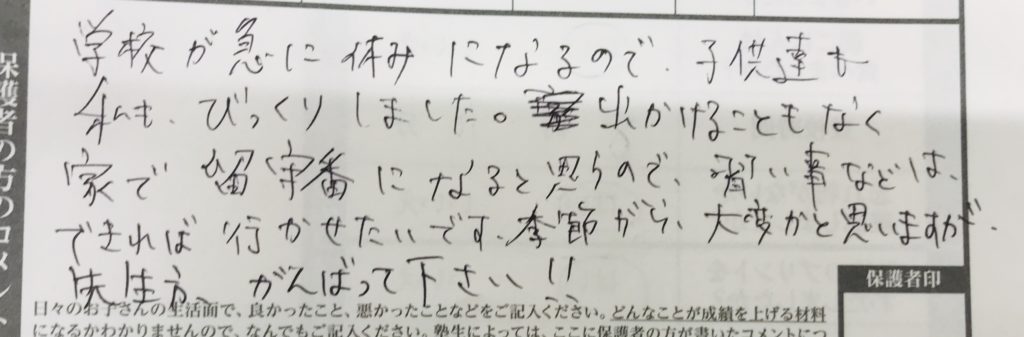 学校が急に休みになるので、子供達も
私も、びっくりしました。出かけることもなく
家で留守番になると思うので、習い事などは、
できれば行かせたいです。季節がら、大変かと思いますが、
先生方、がんばって下さい!!
保護者の方のコメント
保護者印
日々のお子さんの生活面で、良かったこと、悪かったことなどをご記入ください。どんなことが成績を上げる材料
になるかわかりませんので、なんでもご記入ください。塾生によっては、ここに保護者の方が書いたコメントにつ